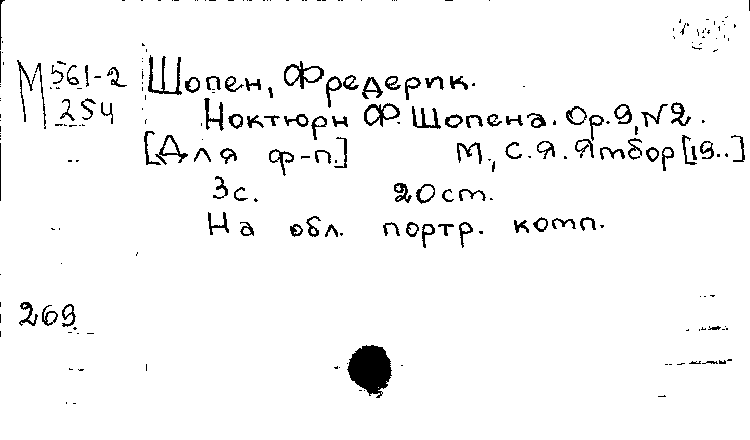 М 561-2
254
Шопен, Фредерик.
Ноктюрн Ф. Шопена. Op. 9, N 2.
[Для ф-п.] М., С. Я. Ямбор [19..]
3 с. 20 ст.
На обл. портр. комп.
269